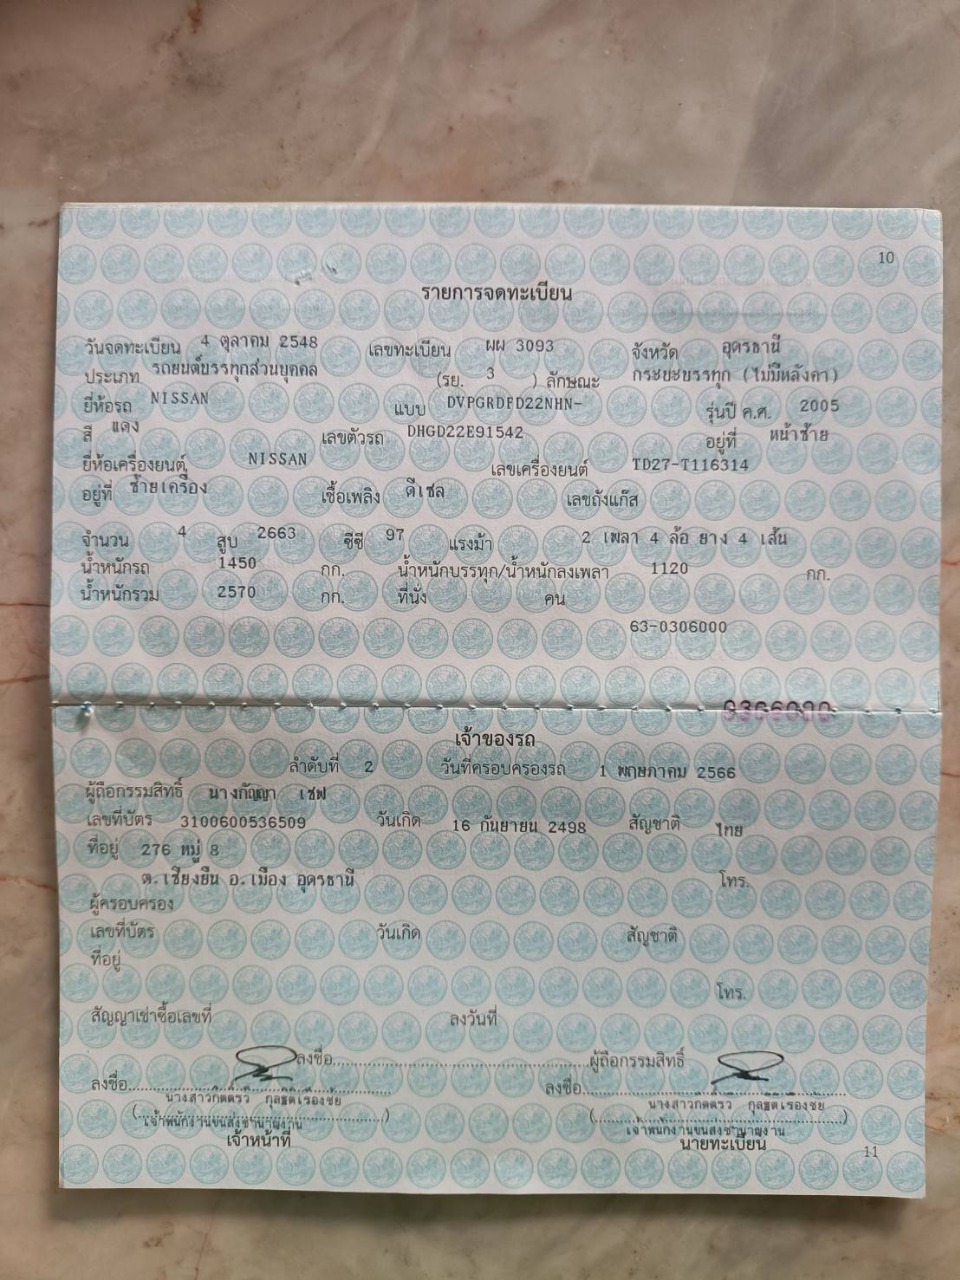 10
รายการจดทะเบียน
วันจดทะเบียน 4 ตุลาคม 2548 เลขทะเบียน ผผ 3093 จังหวัด อุดรธานี
ประเภท รถยนต์บรรทุกส่วนบุคคล (รย. 3 ) ลักษณะ กระบะบรรทุก (ไม่มีหลังคา)
ยี่ห้อรถ NISSAN แบบ DVPGRDFD22NHN- รุ่นปี ค.ศ. 2005
สี แดง เลขตัวรถ DHGD22E91542 อยู่ที่ หน้าซ้าย
ยี่ห้อเครื่องยนต์ NISSAN เลขเครื่องยนต์ TD27-T116314
อยู่ที่ ซ้ายเครื่อง เชื้อเพลิง ดีเซล เลขถังแก๊ส
จำนวน 4 สูบ 2663 ซีซี 97 แรงม้า 2 เพลา 4 ล้อ ยาง 4 เส้น
น้ำหนักรถ 1450 กก. น้ำหนักบรรทุก/น้ำหนักลงเพลา 1120 กก.
น้ำหนักรวม 2570 กก. ที่นั่ง คน
63-0306000
เจ้าของรถ
ลำดับที่ 2 วันที่ครอบครองรถ 1 พฤษภาคม 2566
ผู้ถือกรรมสิทธิ์ นางกัญญา เชฟ
เลขที่บัตร 3100600536509 วันเกิด 16 กันยายน 2498 สัญชาติ ไทย
ที่อยู่ 276 หมู่ 8
ต.เชียงยืน อ.เมือง อุดรธานี โทร.
ผู้ครอบครอง
เลขที่บัตร วันเกิด สัญชาติ
ที่อยู่
โทร.
สัญญาเช่าซื้อเลขที่ ลงวันที่
ลงชื่อ ผู้ถือกรรมสิทธิ์
ลงชื่อ ลงชื่อ
นางสาว นางสาว
เจ้าพนักงานขนส่งชำนาญงาน เจ้าพนักงานขนส่งชำนาญงาน
เจ้าหน้าที่ นายทะเบียน
11